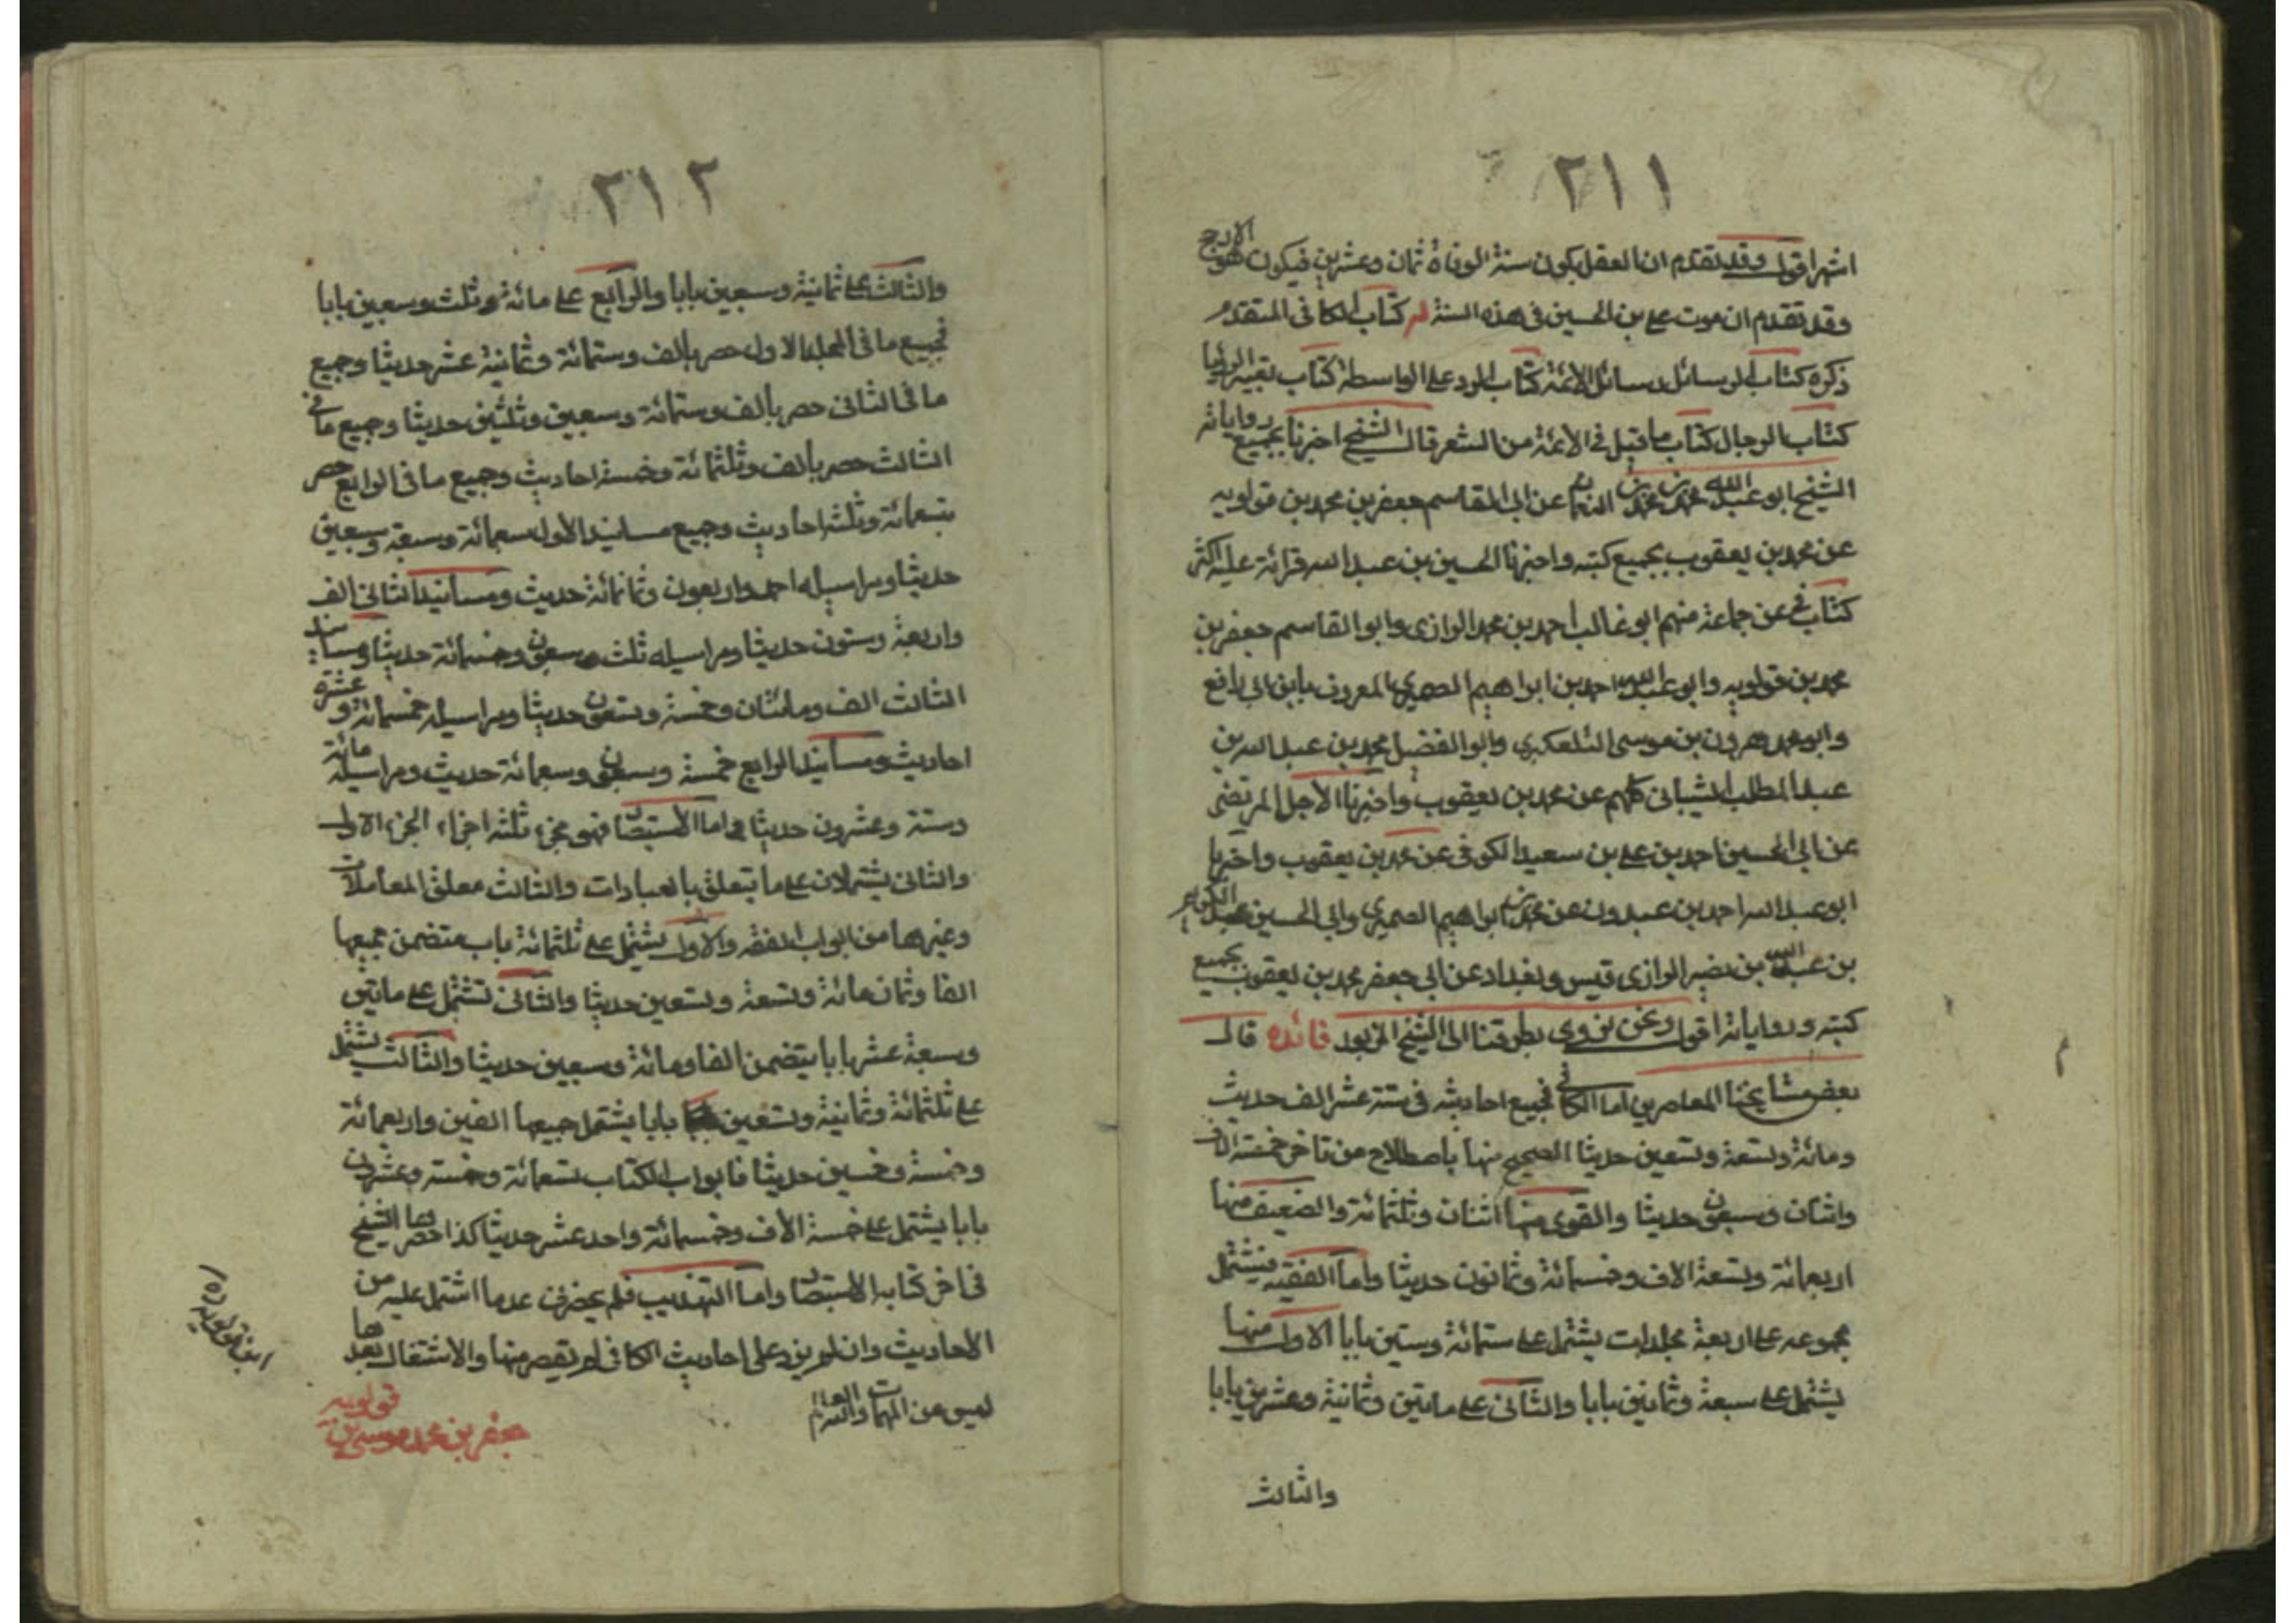 ٢١١
اشهر اقول وقد تقدم ان العقل يكون سنة الوفاة ثمان وعشرين فيكون هو الارجح
وقد تقدم ان موت علي بن الحسين في هذه السنة له كتاب الكافى المتقدم
ذكره كتاب الرسائل رسائل الائمة كتاب الرد على القرامطة كتاب تعبير الرؤيا
كتاب الرجال كتاب ما قيل في الائمة من الشعر قال الشيخ اخبرنا بجميع رواياته
الشيخ ابو عبد الله محمد بن محمد بن النعمان عن ابى القاسم جعفر بن محمد بن قولويه
عن محمد بن يعقوب بجميع كتبه واخبرنا الحسين بن عبد الله قرائة عليه اكثر
كتاب في عن جماعة منهم ابو غالب احمد بن محمد الرازى وابو القاسم جعفر بن
محمد بن قولويه وابو عبد الله احمد بن ابراهيم الصيمرى المعروف بابن ابى رافع
وابو محمد هرون بن موسى التلعكبرى وابو الفضل محمد بن عبد الله بن
عبد المطلب الشيبانى كلهم عن محمد بن يعقوب واخبرنا الاجل المرتضى
عن ابى الحسين احمد بن على بن سعيد الكوفى عن محمد بن يعقوب واخبرنا
ابو عبد الله احمد بن عبدون عن محمد بن ابراهيم الصيمرى وابى الحسين عبد الكريم
بن عبد الله بن نصر الرازى قيس وبغداد عن ابى جعفر محمد بن يعقوب بجميع
كتبه ورواياته اقول ونحن نروى بطرقنا الى الشيخ المزبور فائده قال
بعض مشايخنا المعاصرين اما الكافى فجميع احاديثه فى ستة عشر الف حديث
ومائة وتسعة وتسعين حديثا الصحيح منها باصطلاح من تاخر خمسة الاف
واثنان وسبعون حديثا والقوى منها اثنان وثلثمائة والضعيف منها
اربعمائة وتسعة الاف وخمسمائة وثمانون حديثا واما الفقيه فيشتمل
مجموعه على اربعة مجلدات يشتمل على ستمائة وستين بابا الاول منها
يشتمل على سبعة وثمانين بابا والثانى على مايتين وثمانية وعشرين بابا
والثالث
٢١٢
والثالث على ثمانية وسبعين بابا والرابع على مائة وثلث وسبعين بابا
فجميع ما فى المجلد الاول حصر بالف وستمائة وثمانية عشر حديثا وجميع
ما فى الثانى حصر بألف وستمائة وسبعين وثلثين حديثا وجميع ما فى
الثالث حصر بألف وثلثمائة وخمسة احاديث وجميع ما فى الرابع حصر
بتسعمائة وثلثه احاديث وجميع مسانيد الاول سبعمائة وسبعة وسبعين
حديثا ومراسيله احد واربعون وثمانمائة حديث ومسانيد الثانى الف
واربعة وستون حديثا ومراسيله ثلث وسبعون وخمسمائة حديثا ومسانيد
الثالث الف ومائتان وخمسة وتسعون حديثا ومراسيله خمسمائة وعشرة
احاديث ومسانيد الرابع خمسة وسبعون وسبعمائة حديث ومراسيله مائة
وستة وعشرون حديثا واما الاستبصار فهو مجزء ثلثه اجزاء الجزء الاول
والثانى يشتملان على ما يتعلق بالعبادات والثالث معلق المعاملات
وغيرها من ابواب الفقه والاول يشتمل على ثلثمائة باب متضمن جميعها
الفا وثمان مائة وتسعة وتسعين حديثا والثانى تشتمل على مايتين
وسبعة عشر بابا يتضمن الفا ومائة وسبعين حديثا والثالث يشتمل
على ثلثمائة وثمانية وتسعين بابا يشتمل جميعها الفين واربعمائة
وخمسة وخمسين حديثا فابواب الكتاب تسعمائة وخمسة وعشرون
بابا يشتمل على خمسة الاف وخمسمائة واحد عشر حديثا كذا حصرها الشيخ
فى اخر كتابه الاستبصار واما التهذيب فلم يحضرنى عدد ما اشتمل عليه من
الاحاديث وان لم يزد على احاديث الكافى لم يقصر منها والاشتغال بعدها
ليس من المهمات والله العالم
قولويه
جعفر بن محمد موسى بن
ابن قولويه